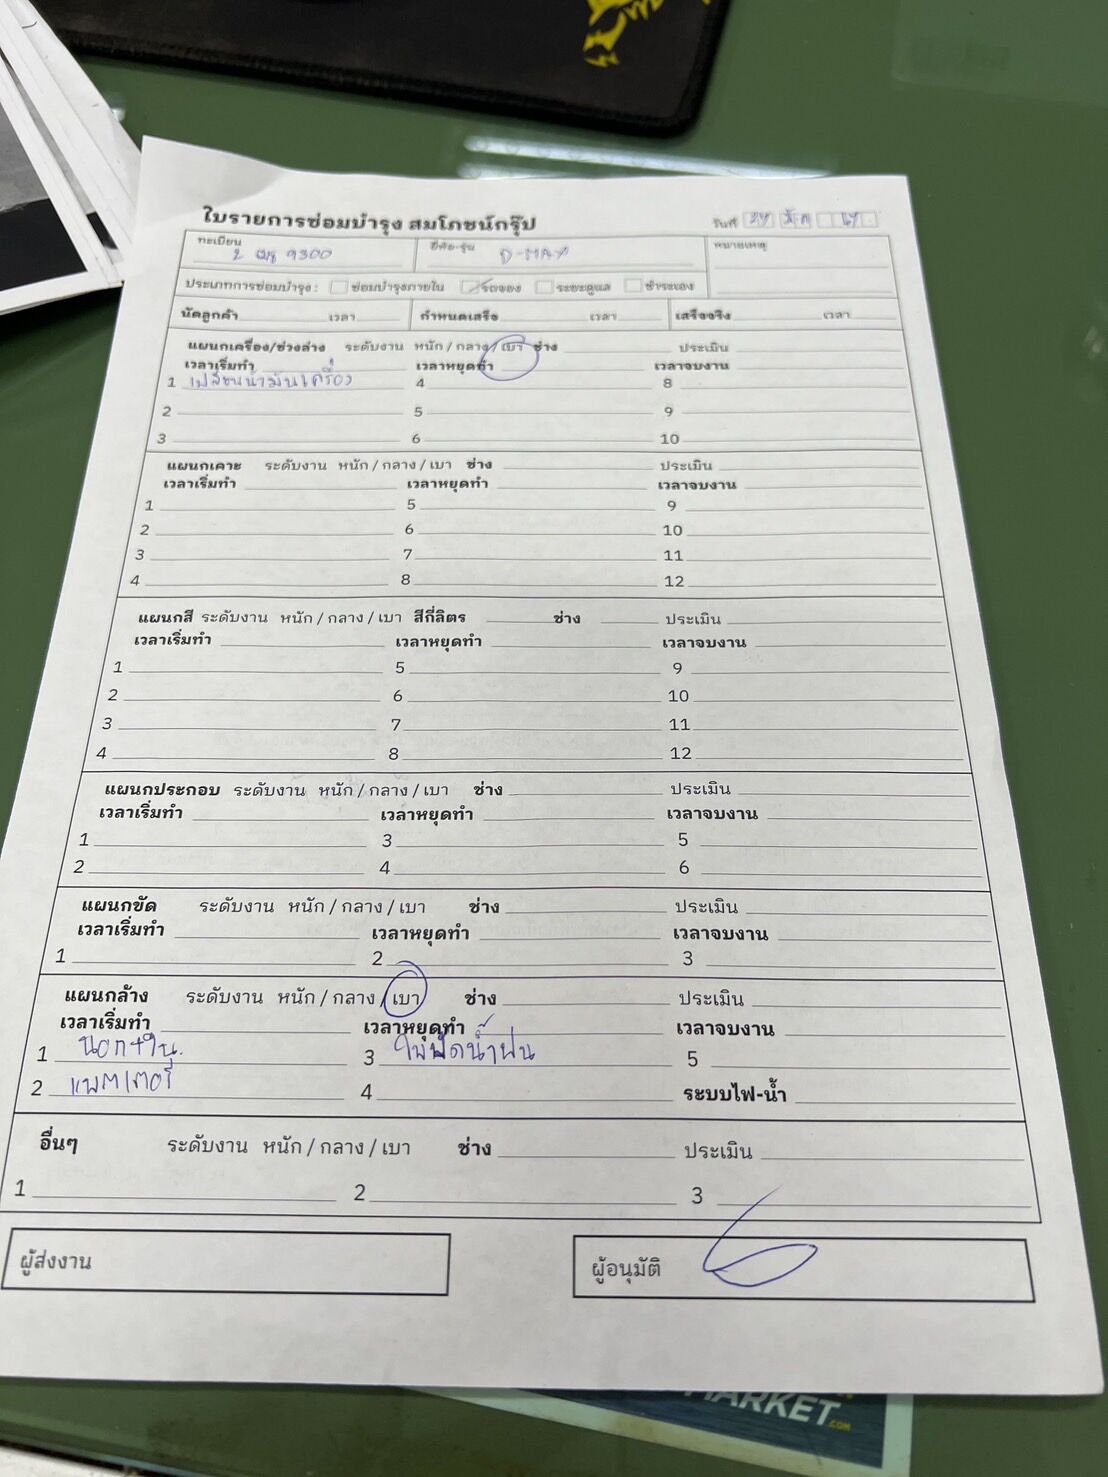 ใบรายการซ่อมบำรุง สมโภชน์กรุ๊ป วันที่
ทะเบียน ยี่ห้อ-รุ่น หมายเหตุ
2 9300 D-MAX
ประเภทการซ่อมบำรุง : ซ่อมบำรุงภายใน รถจอง ระยะดูแล ชำระเอง
นัดลูกค้า เวลา กำหนดเสร็จ เวลา เสร็จจริง เวลา
แผนกเครื่อง/ช่วงล่าง ระดับงาน หนัก / กลาง / เบา ช่าง ประเมิน
เวลาเริ่มทำ เวลาหยุดทำ เวลาจบงาน
1 เปลี่ยนน้ำมันเครื่อง 4 8
2 5 9
3 6 10
แผนกเคาะ ระดับงาน หนัก / กลาง / เบา ช่าง ประเมิน
เวลาเริ่มทำ เวลาหยุดทำ เวลาจบงาน
1 5 9
2 6 10
3 7 11
4 8 12
แผนกสี ระดับงาน หนัก / กลาง / เบา สีกี่ลิตร ช่าง ประเมิน
เวลาเริ่มทำ เวลาหยุดทำ เวลาจบงาน
1 5 9
2 6 10
3 7 11
4 8 12
แผนกประกอบ ระดับงาน หนัก / กลาง / เบา ช่าง ประเมิน
เวลาเริ่มทำ เวลาหยุดทำ เวลาจบงาน
1 3 5
2 4 6
แผนกขัด ระดับงาน หนัก / กลาง / เบา ช่าง ประเมิน
เวลาเริ่มทำ เวลาหยุดทำ เวลาจบงาน
1 2 3
แผนกล้าง ระดับงาน หนัก / กลาง / เบา ช่าง ประเมิน
เวลาเริ่มทำ เวลาหยุดทำ เวลาจบงาน
1 นอก+ใน. 3 ใบปัดน้ำฝน 5
2 แบตเตอรี่ 4 ระบบไฟ-น้ำ
อื่นๆ ระดับงาน หนัก / กลาง / เบา ช่าง ประเมิน
1 2 3
ผู้ส่งงาน ผู้อนุมัติ
MARKET.COM